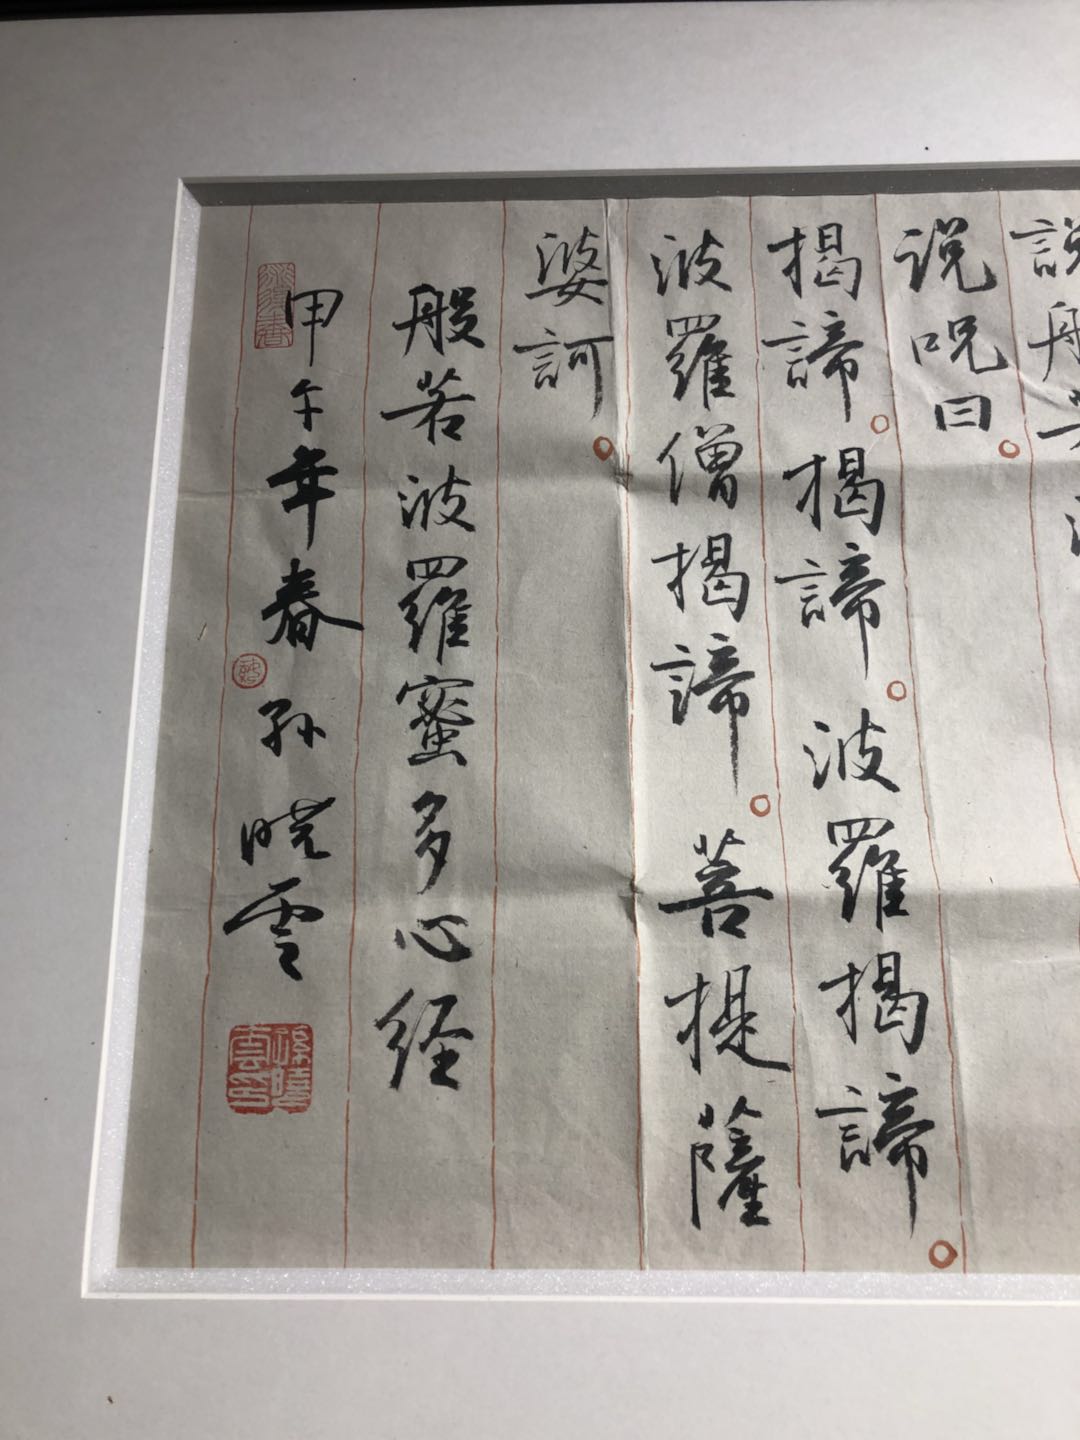 説般若
说呪曰
揭諦揭諦波羅揭諦
波羅僧揭諦菩提薩
婆訶
般若波羅蜜多心経
甲午年春孙晓雲